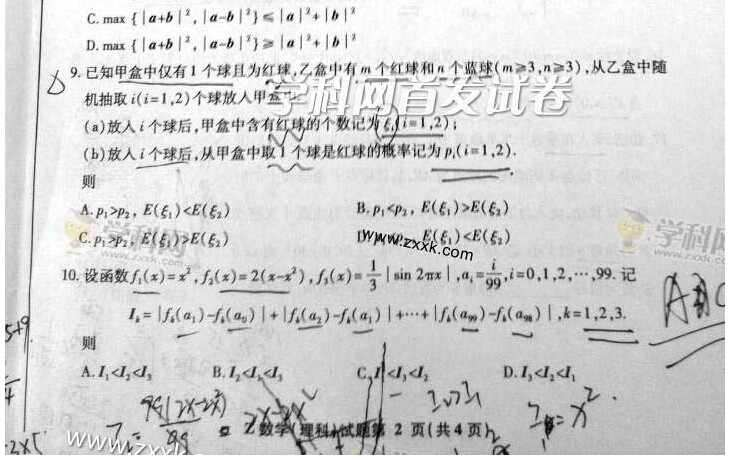 C. max { |a+b|², |a-b|² } ≤ |a|²+|b|²
D. max { |a+b|², |a-b|² } ≥ |a|²+|b|²
9. 已知甲盒中仅有1个球且为红球,乙盒中有m个红球和n个蓝球(m≥3,n≥3),从乙盒中随
机抽取i(i=1,2)个球放入甲盒中.
学科网首发试卷
(a)放入i个球后,甲盒中含有红球的个数记为ξᵢ(i=1,2);
(b)放入i个球后,从甲盒中取1个球是红球的概率记为pᵢ(i=1,2).
则
A. p₁>p₂, E(ξ₁)<E(ξ₂) B. p₁<p₂, E(ξ₁)>E(ξ₂)
C. p₁>p₂, E(ξ₁)>E(ξ₂) D. p₁<p₂, E(ξ₁)<E(ξ₂)
学科网
www.zxxk.com
学科网
10. 设函数f₁(x)=x², f₂(x)=2(x-x²), f₃(x)=1/3|sin 2πx|, aᵢ=i/99, i=0,1,2,…,99. 记
Iₖ=|fₖ(a₁)-fₖ(a₀)|+|fₖ(a₂)-fₖ(a₁)|+…+|fₖ(a₉₉)-fₖ(a₉₈)|, k=1,2,3.
则
A. I₁<I₂<I₃ B. I₂<I₁<I₃ C. I₁<I₃<I₂ D. I₃<I₂<I₁
数学(理科)试题第 2 页(共4页)
www.zxxk.com